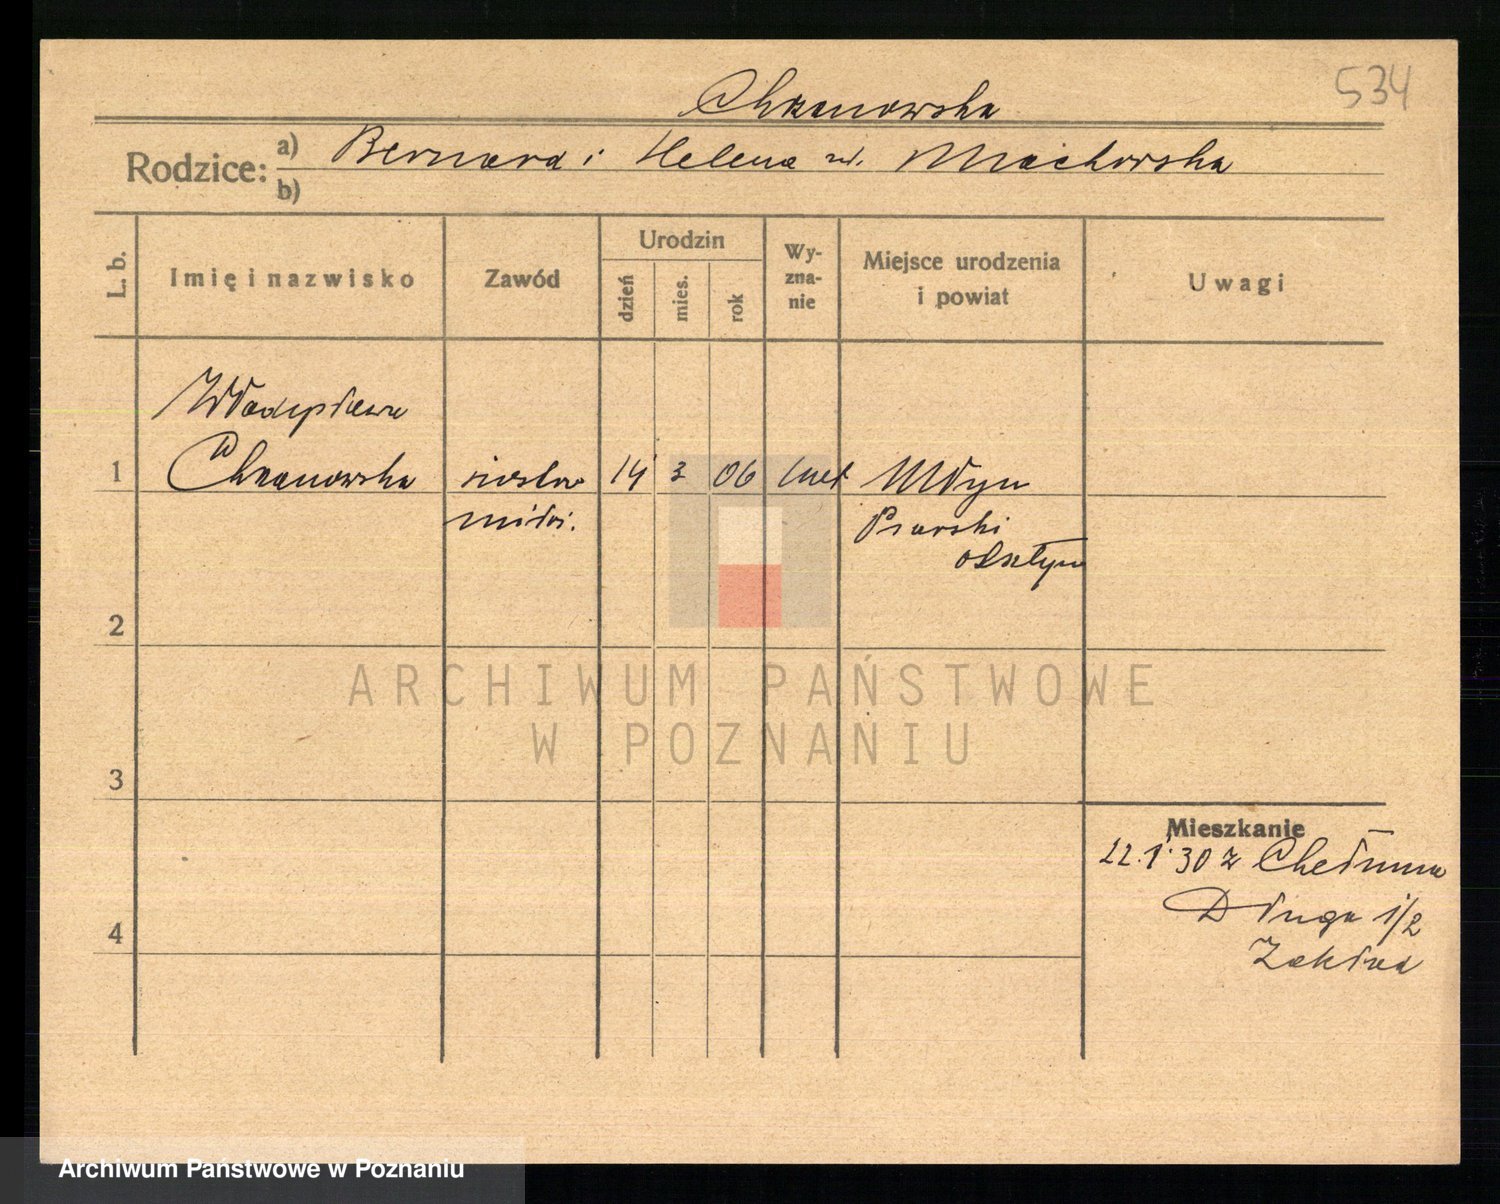 534
Chrzanowska
Rodzice: a) Bernard i Helena ur. Machowska
b)
L. b. Imię i nazwisko Zawód Urodzin dzień mies. rok Wyzna-nie Miejsce urodzenia i powiat Uwagi
Władysława
1 Chrzanowska siostra 14 3 06 Młyn
miłos. Psarski
Olsztyn
2
ARCHIWUM PAŃSTWOWE
W POZNANIU
3
Mieszkanie
22.1.30 z Chełmna
4 Długa 1/2
Zakład
Archiwum Państwowe w Poznaniu